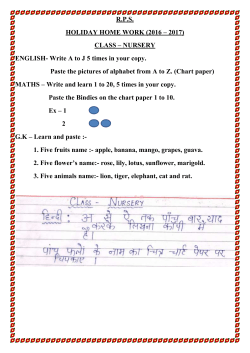 R.P.S.
HOLIDAY HOME WORK (2016 – 2017)
CLASS – NURSERY
ENGLISH- Write A to J 5 times in your copy.
Paste the pictures of alphabet from A to Z. (Chart paper)
MATHS – Write and learn 1 to 20, 5 times in your copy.
Paste the Bindies on the chart paper 1 to 10.
Ex – 1
2
G.K – Learn and paste :-
1. Five fruits name :- apple, banana, mango, grapes, guava.
2. Five flower's name:- rose, lily, lotus, sunflower, marigold.
3. Five animals name:- lion, tiger, elephant, cat and rat.
CLASS - NURSERY
हिन्दी : अ से ऐ तक पाँच बार याद
करके लिखना कॉपी में
है।
पांच फलो के नाम का चित्र चार्ट पेपर पर
चिपकाए ।